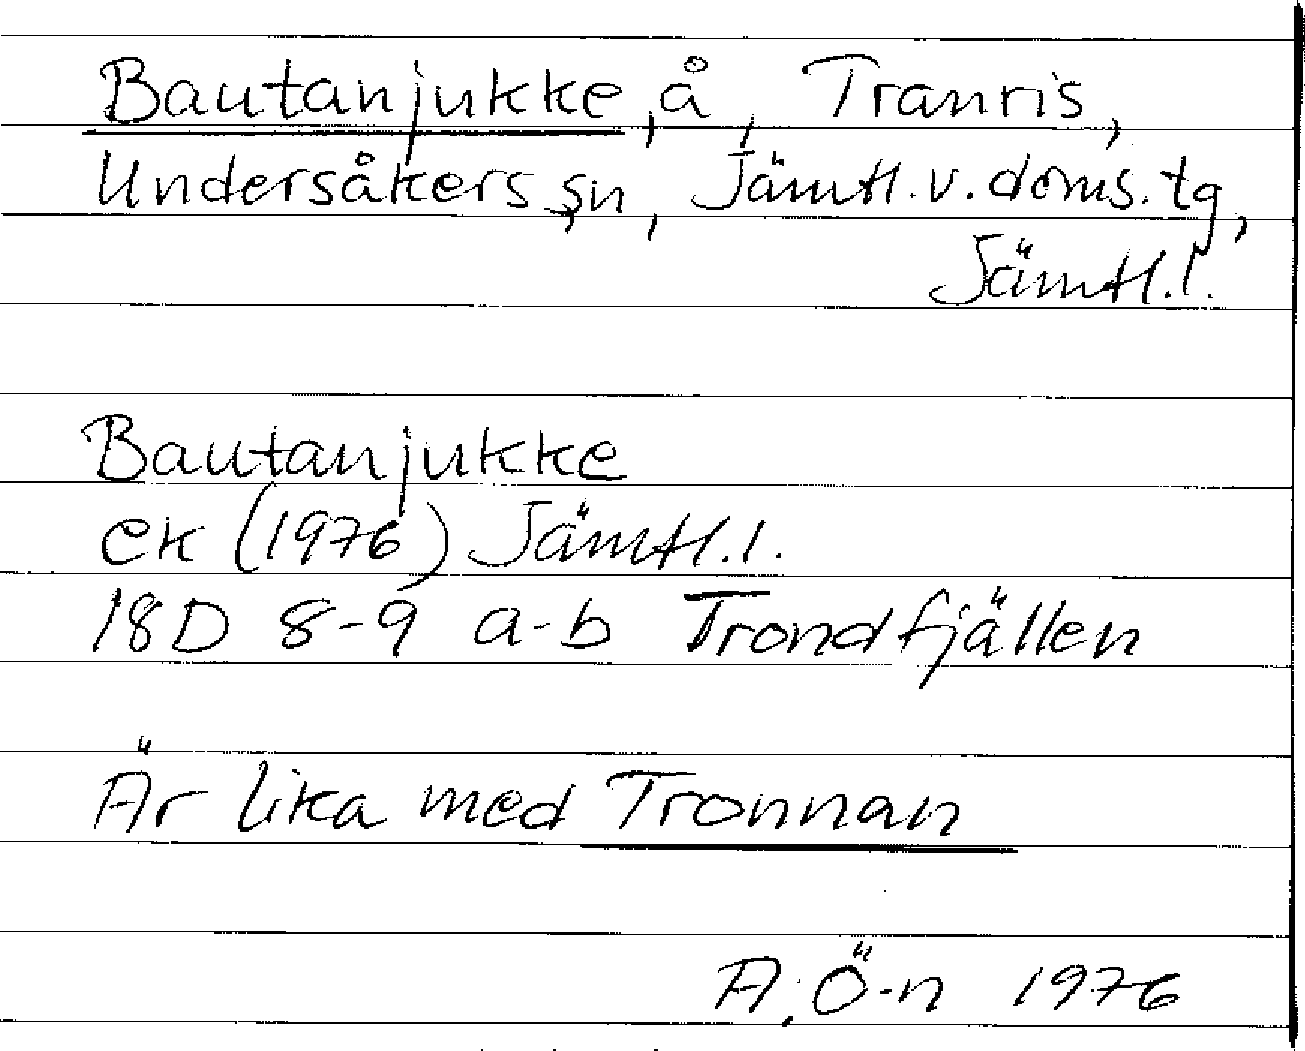 Bautanjukke, å, Tranris,
Undersåkers sn, Jämtl. v. doms. tg,
Jämtl. l.
Bautanjukke
ek (1976) Jämtl. l.
18D 8-9 a-b Trondfjällen
Är lika med Tronnan
A. Ö-n 1976